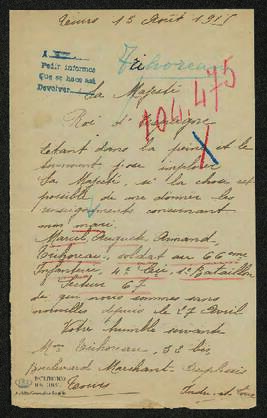 Tours 15 Août 1915
A
Pedir informes
Que se hace así
Devolver
Trihoreau
104,475
Sa Majesté
Roi d'Espagne
Etant dans la peine et le
tourment j'ose implorer
Sa Majesté, si la chose est
possible de me donner les
renseignements concernant
mon mari
Marcel, Auguste, Armand,
Trihoreau, soldat au 66ème
Infanterie, 4e Cie, 1er Bataillon
Secteur 67
de qui nous sommes sans
nouvelles depuis le 27 Avril
Votre humble servante
Mme Trihoreau, 33 bis,
Boulevard Marchant-Duplessis
Tours
Indre et Loire